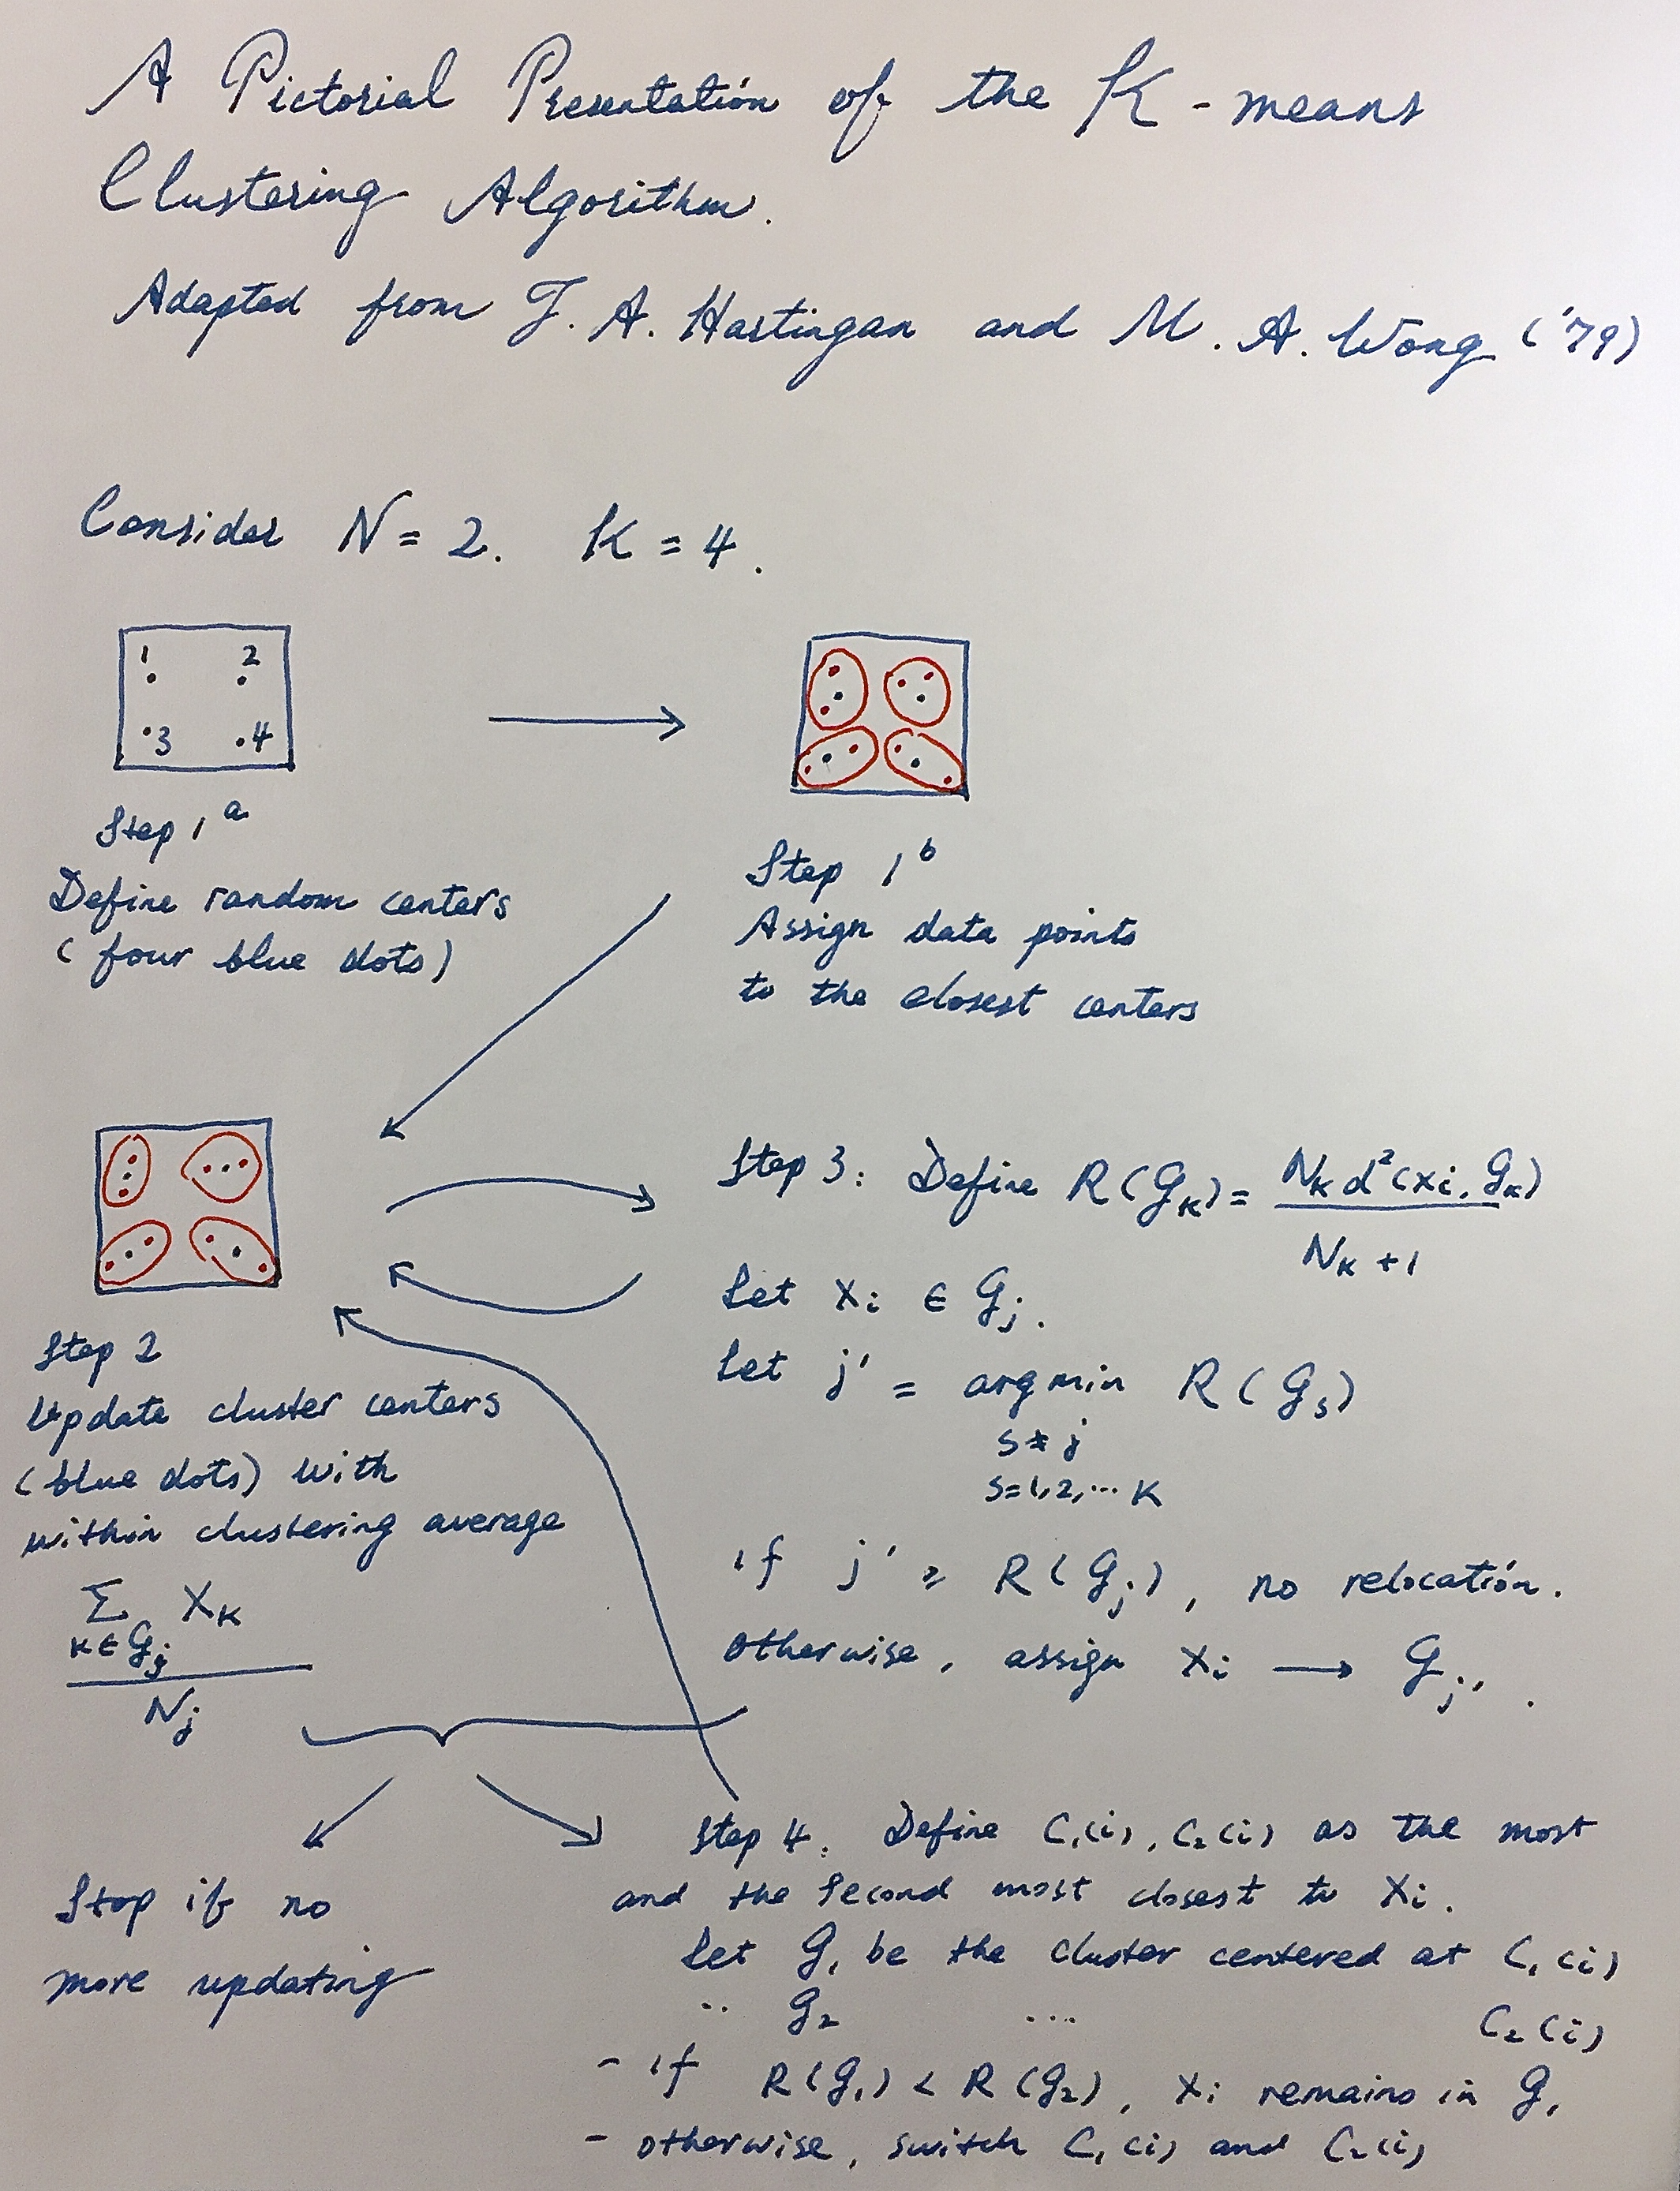 A Pictorial Presentation of the K-means
Clustering Algorithm.
Adapted from J. A. Hartingan and M. A. Wong ('79)
Consider N = 2. K = 4.
1 2
3 4
Step 1 a
Define random centers
(four blue dots)
Step 1 b
Assign data points
to the closest centers
Step 2
Update cluster centers
(blue dots) with
within clustering average
Σ X_K
K ∈ G_j
N_j
Step 3: Define R(G_K) = N_K d²(x_i, G_K)
N_K + 1
Let x_i ∈ G_j.
Let j' = argmin R(G_s)
s ≠ j
s=1,2,... K
if j' ≥ R(G_j), no relocation.
Otherwise, assign x_i → G_j'.
Stop if no
more updating
Step 4. Define C_1(i), C_2(i) as the most
and the second most closest to x_i.
Let G_1 be the cluster centered at C_1(i)
.. G_2 ... C_2(i)
- if R(G_1) < R(G_2), x_i remains in G_1
- otherwise, switch C_1(i) and C_2(i)